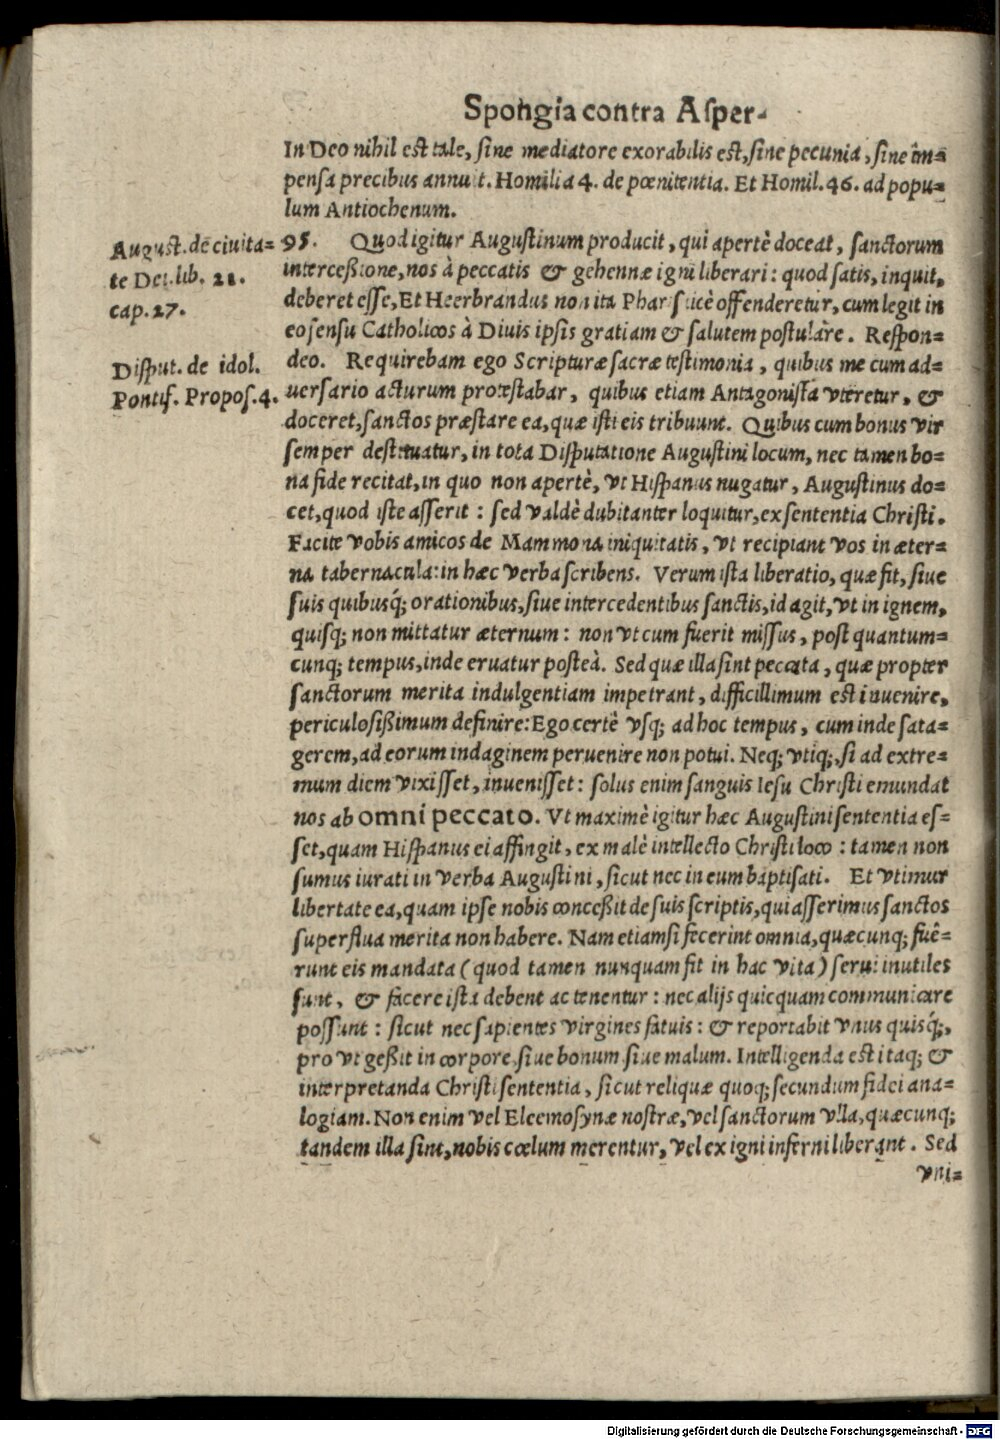 Spongia contra Aſper-
In Deo nihil eſt tale, ſine mediatore exorabilis eſt, ſine pecunia, ſine im=
penſa precibus annuit. Homilia 4. de pœnitentia. Et Homil. 46. ad popu=
lum Antiochenum.
Auguſt. de ciuita=
te Dei. lib. 21.
cap. 27.
95. Quod igitur Auguſtinum producit, qui apertè doceat, ſanctorum
interceßione, nos à peccatis & gehennæ igni liberari: quod ſatis, inquit,
deberet eſſe, Et Heerbrandus non ita Phariſaicè offenderetur, cum legit in
eo ſenſu Catholicos à Diuis ipſis gratiam & ſalutem poſtulare. Reſpon=
Diſput. de idol.
Pontif. Propoſ. 4.
deo. Requirebam ego Scripturæ ſacræ teſtimonia, quibus me cum ad=
uerſario acturum proteſtabar, quibus etiam Antagoniſta vteretur, &
doceret, ſanctos præſtare ea, quæ iſti eis tribuunt. Quibus cum bonus vir
ſemper deſtituatur, in tota Diſputatione Auguſtini locum, nec tamen bo=
na fide recitat, in quo non apertè, vt Hiſpanus nugatur, Auguſtinus do=
cet, quod iſte aſſerit: ſed valdè dubitanter loquitur, ex ſententia Chriſti.
Facite vobis amicos de Mammona iniquitatis, vt recipiant vos in æter=
na tabernacula: in hæc verba ſcribens. Verum iſta liberatio, quæ fit, ſiue
ſuis quibusq́; orationibus, ſiue intercedentibus ſanctis, id agit, vt in ignem,
quiſq; non mittatur æternum: non vt cum fuerit miſſus, poſt quantum=
cunq; tempus, inde eruatur poſteà. Sed quæ illa ſint peccata, quæ propter
ſanctorum merita indulgentiam impetrant, difficillimum eſt inuenire,
periculoſißimum definire: Ego certè vſq; ad hoc tempus, cum inde ſata=
gerem, ad eorum indaginem peruenire non potui. Neq; vtiq;, ſi ad extre=
mum diem vixiſſet, inueniſſet: ſolus enim ſanguis Ieſu Chriſti emundat
nos ab omni peccato. Vt maximè igitur hæc Auguſtini ſententia eſ=
ſet, quam Hiſpanus ei affingit, ex malè intellecto Chriſti loco: tamen non
ſumus iurati in verba Auguſtini, ſicut nec in eum baptiſati. Et vtimur
libertate ea, quam ipſe nobis conceßit de ſuis ſcriptis, qui aſſerimus ſanctos
ſuperflua merita non habere. Nam etiamſi fecerint omnia, quæcunq; fuê=
runt eis mandata (quod tamen nunquam fit in hac vita) ſerui inutiles
ſunt, & facere iſta debent ac tenentur: nec alijs quicquam communicare
poſſunt: ſicut nec ſapientes virgines fatuis: & reportabit vnus quisq́;,
pro vt geßit in corpore, ſiue bonum ſiue malum. Intelligenda eſt itaq; &
interpretanda Chriſti ſententia, ſicut reliquæ quoq; ſecundum fidei ana=
logiam. Non enim vel Eleemoſynæ noſtræ, vel ſanctorum vlla, quæcunq;
tandem illa ſint, nobis cœlum merentur, vel ex igni inferni liberant. Sed
vni=
Digitalisierung gefördert durch die Deutsche Forschungsgemeinschaft - DFG